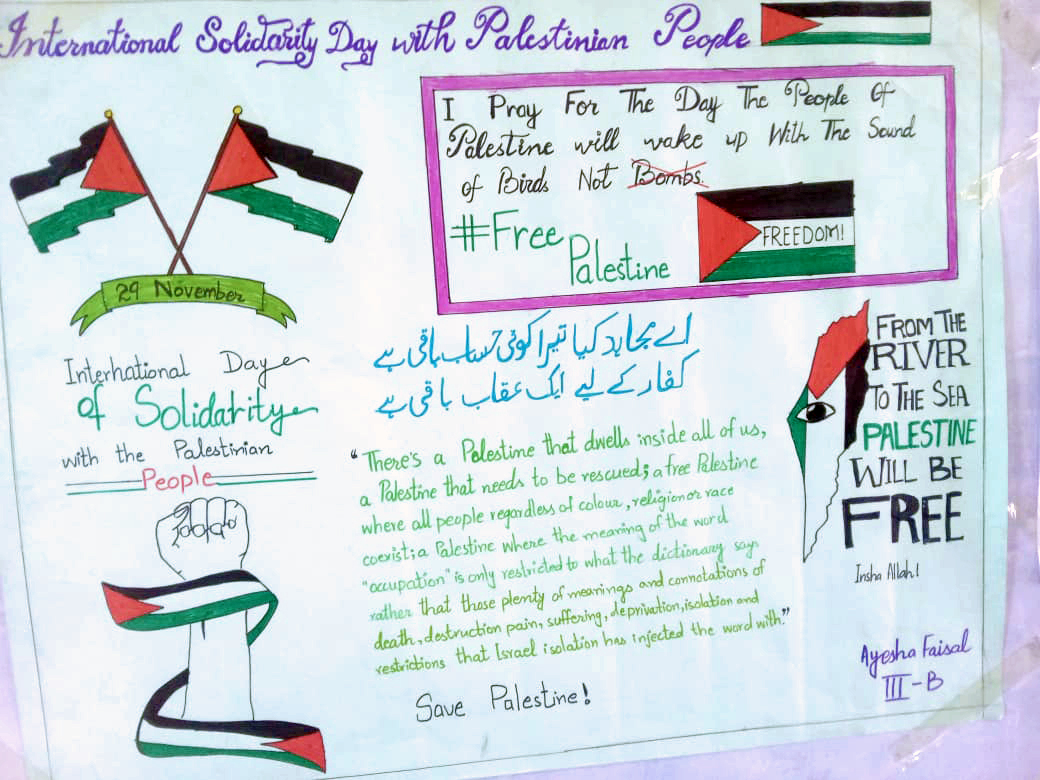 International Solidarity Day with Palestinian People
I Pray For The Day The People Of
Palestine will wake up With The Sound
of Birds Not Bombs.
#Free
Palestine
FREEDOM!
29 November
International Day
of Solidarity
with the Palestinian
People
اے مجاہد کیا تیرا کوئی حساب باقی ہے
کفار کے لیے ایک عقاب باقی ہے
"There's a Palestine that dwells inside all of us,
a Palestine that needs to be rescued; a free Palestine
where all people regardless of colour, religion or race
coexist; a Palestine where the meaning of the word
"occupation" is only restricted to what the dictionary says
rather that those plenty of meanings and connotations of
death, destruction pain, suffering, deprivation, isolation and
restrictions that Israel isolation has injected the word with."
Save Palestine!
FROM THE
RIVER
TO THE SEA
PALESTINE
WILL BE
FREE
Insha Allah!
Ayesha Faisal
III-B